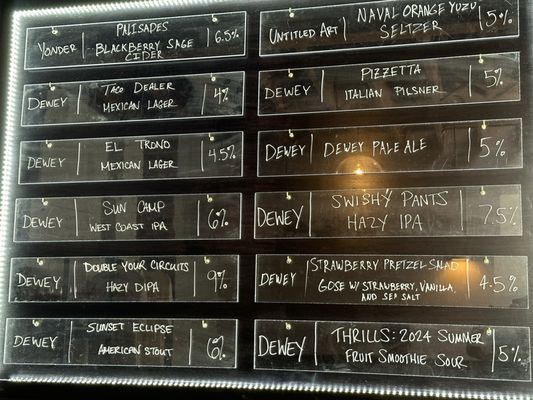 YONDER
PALISADES
BLACKBERRY SAGE
CIDER
6.5%
DEWEY
TACO DEALER
MEXICAN LAGER
4%
DEWEY
EL TRONO
MEXICAN LAGER
4.5%
DEWEY
SUN CAMP
WEST COAST IPA
6%
DEWEY
DOUBLE YOUR CIRCUITS
HAZY DIPA
9%
DEWEY
SUNSET ECLIPSE
AMERICAN STOUT
6%
UNTITLED ART
NAVAL ORANGE YUZU
SELTZER
5%
DEWEY
PIZZETTA
ITALIAN PILSNER
5%
DEWEY
DEWEY PALE ALE
5%
DEWEY
SWISHY PANTS
HAZY IPA
7.5%
DEWEY
STRAWBERRY PRETZEL SALAD
GOSE W/ STRAWBERRY, VANILLA,
AND SEA SALT
4.5%
DEWEY
THRILLS: 2024 SUMMER
FRUIT SMOOTHIE SOUR
5%